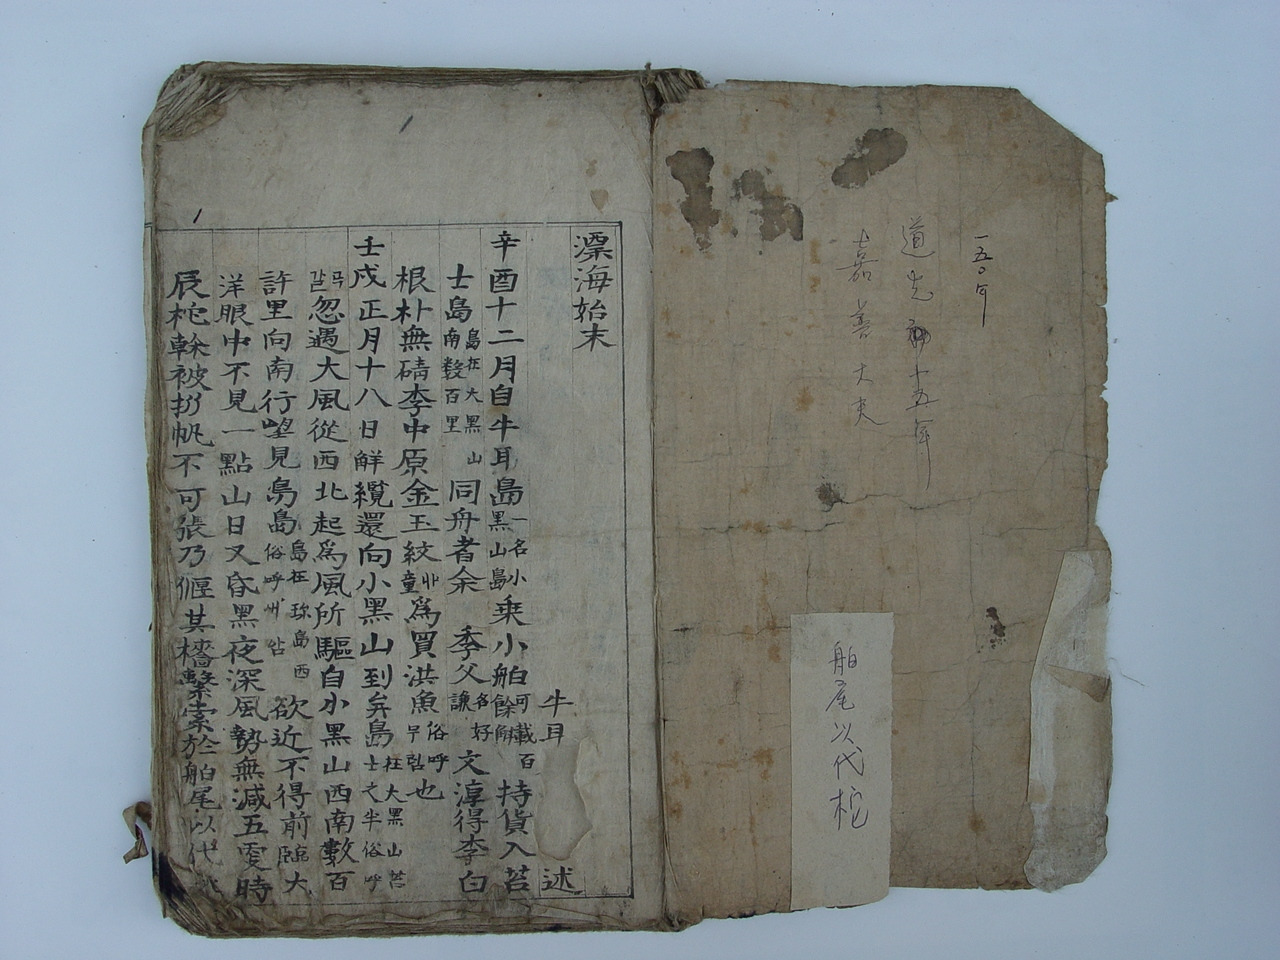 一五〇年
道光 十五年
嘉善大夫
舶尾以代柁
漂海始末
牛耳 述
辛酉十二月自牛耳島一名小黑山島乘小舶可載百餘斛持貨入苔
士島島在大黑山南數百里同舟者余 季父名好謙文淳得李白
根朴無碃李中原金玉紋童丱爲買洪魚俗呼무럼也
壬戌正月十八日解纜還向小黑山到弁島在大黑山苔士之半俗呼
곡갈忽遇大風從西北起爲風所驅自小黑山西南數百
許里向南行望見島島島在珎島西俗呼州 欲近不得前臨大
洋眼中不見一點山日又昏黑夜深風勢無減五更時
辰柁幹被折帆不可張乃偃其檣繫索於舶尾以代